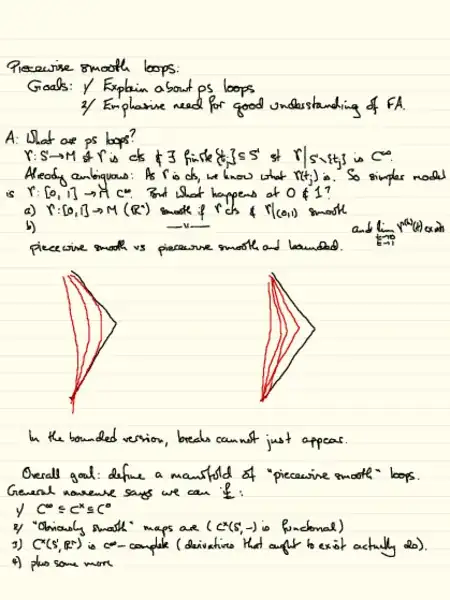 Piecewise smooth loops:
Goals: 1/ Explain about ps loops
2/ Emphasise need for good understanding of FA.
A: What are ps loops?
γ: S¹→M st γ is cts & ∃ finite {t_j} ⊆ S¹ st γ|S¹\{t_j} is C^∞.
Already ambiguous: As γ is cts, we know what γ(t_j) is. So simpler model
is γ: [0, 1] → M C^∞. But what happens at 0 & 1?
a) γ: [0,1] → M (ℝⁿ) smooth if γ cts & γ|(0,1) smooth
b) —〃— and lim t→0 t→1 γ^(k)(t) exists
piecewise smooth vs piecewise smooth and bounded.
In the bounded version, breaks cannot just appear.
Overall goal: define a manifold of "piecewise smooth" loops.
General nonsense says we can if:
1/ C^∞ ⊆ C^x ⊆ C^0
2/ "Obviously smooth" maps are (C^x(S¹,-) is functorial)
3) C^x(S¹, ℝⁿ) is c^∞-complete (derivatives that ought to exist actually do).
4) plus some more